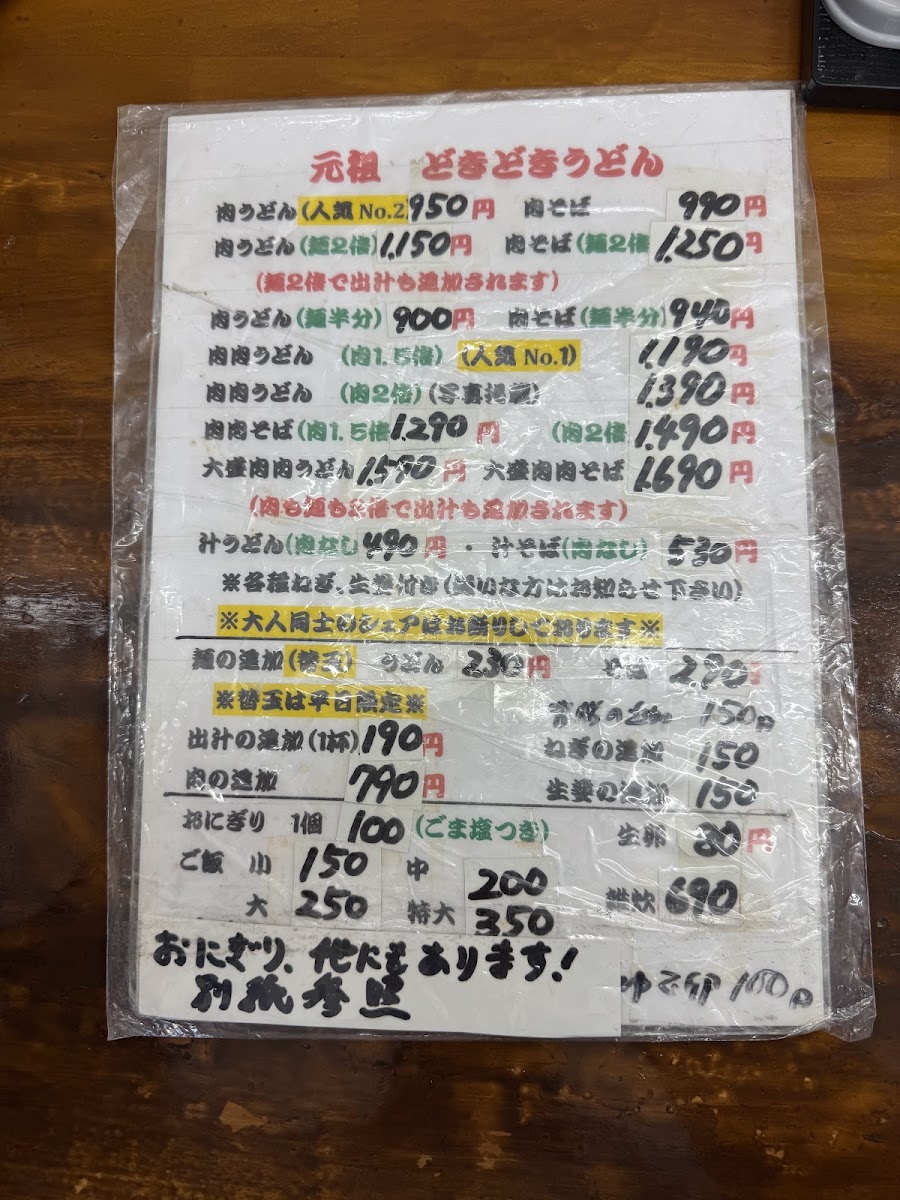 元祖 どきどきうどん
肉うどん(人気No.2) 950円 肉そば 990円
肉うどん(麺2倍) 1,150円 肉そば(麺2倍 1.250円
(麺2倍で出汁も追加されます)
肉うどん(麺半分) 900円 肉そば(麺半分) 940円
肉肉うどん (肉1.5倍) (人気No.1) 1,190円
肉肉うどん (肉2倍) (写真掲載) 1.390円
肉肉そば(肉1.5倍 1.290円 (肉2倍 1.490円
大盛肉肉うどん 1.590円 大盛肉肉そば 1.690円
(肉も麺も2倍で出汁も追加されます)
汁うどん(肉なし 490円 ・汁そば(肉なし) 530円
※各種ねぎ、生姜付き(嫌いな方はお知らせ下さい)
※大人同士のシェアはお断りしております※
麺の追加(替玉) うどん 230円 そば 290円
※替玉は平日限定※ 150円
出汁の追加(1杯) 190円 ねぎの追加 150
肉の追加 790円 生姜の追加 150
おにぎり 1個 100 (ごま塩つき) 生卵 80円
ご飯 小 150 中 200 雑炊 690
大 250 特大 350
おにぎり、他にもあります!
別紙参照 100円